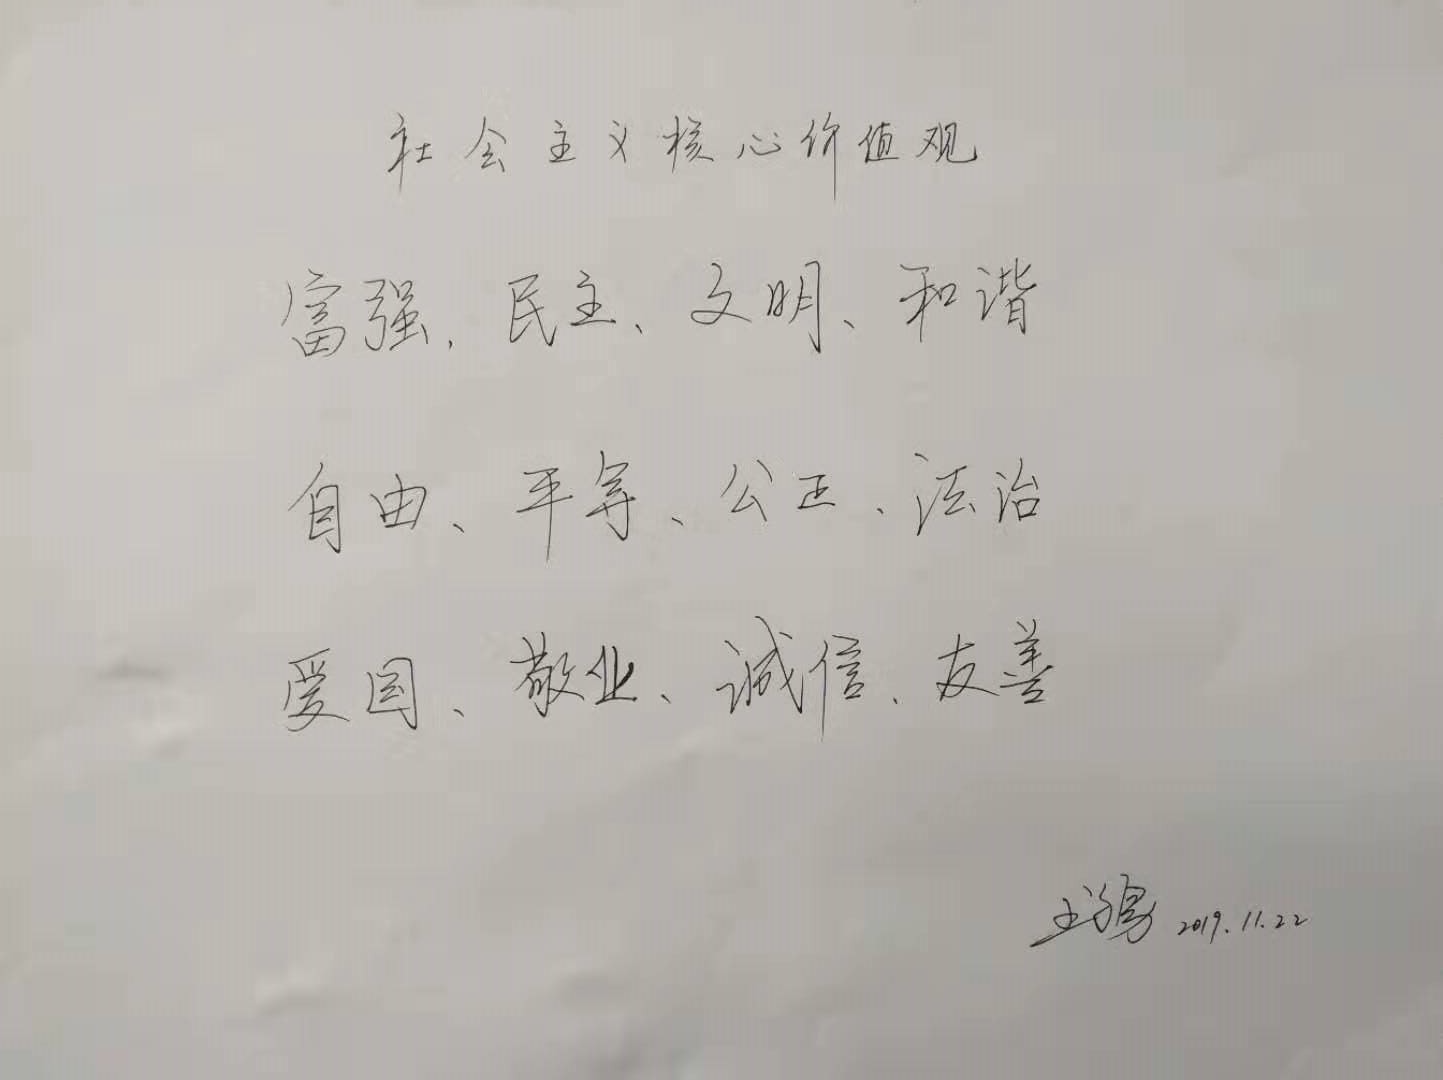 社会主义核心价值观
富强、民主、文明、和谐
自由、平等、公正、法治
爱国、敬业、诚信、友善
王 2019.11.22